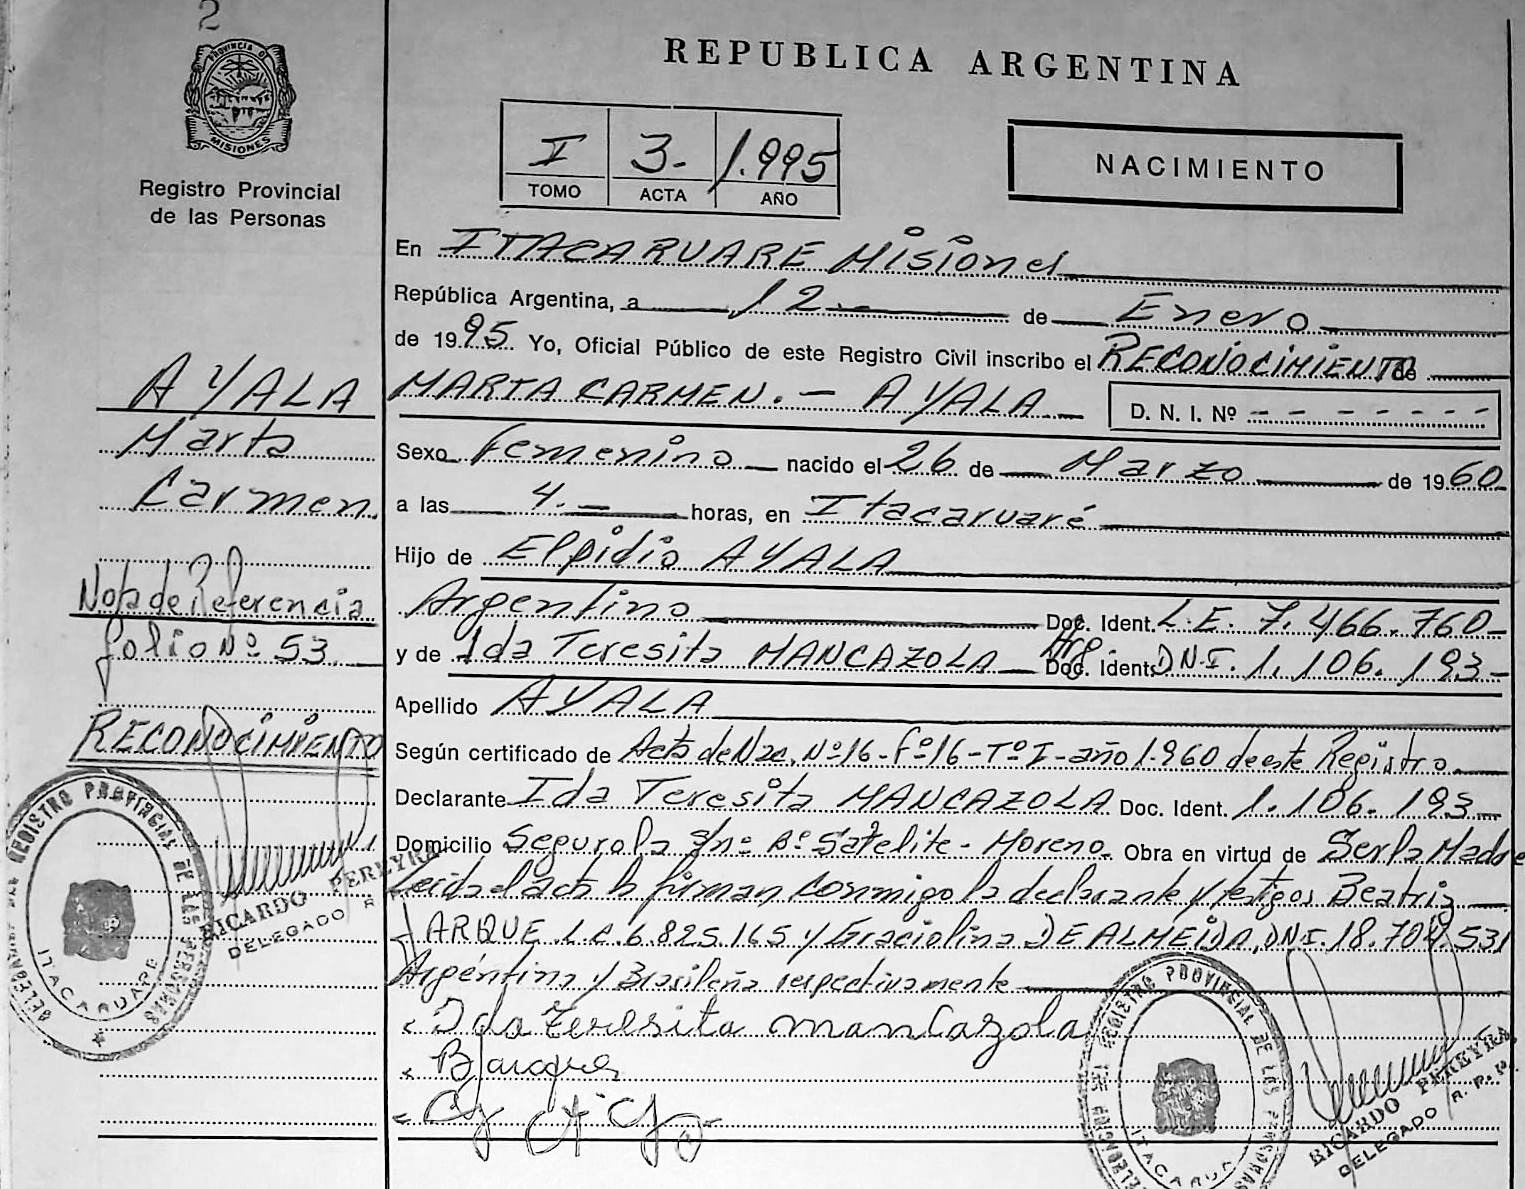 2
PROVINCIA DE
MISIONES
Registro Provincial
de las Personas
AYALA
Marta
Carmen
Nota de Referencia
folio Nº 53
RECONOCIMIENTO
REGISTRO PROVINCIAL DE LAS PERSONAS
ITACARUARE
RICARDO PEREYRA
DELEGADO R.
REPUBLICA ARGENTINA
I 3- 1.995
TOMO ACTA AÑO
NACIMIENTO
En ITACARUARE Misiones
República Argentina, a 12 de Enero
de 1995 Yo, Oficial Público de este Registro Civil inscribo el RECONOCIMIENTO de
MARTA CARMEN.- AYALA D. N. I. Nº - - - - - - -
Sexo Femenino nacido el 26 de Marzo de 1960
a las 4.- horas, en Itacaruaré
Hijo de Elpidio AYALA
Argentino Doc. Ident. L.E. 7.466.760-
y de Ida Teresita MANCAZOLA Arg. Doc. Ident. D.N.I. 1.106.193-
Apellido AYALA
Según certificado de Acta de Nac. Nº 16-Fº 16-Tº I-año 1.960 de este Registro
Declarante Ida Teresita MANCAZOLA Doc. Ident. 1.106.193
Domicilio Segurola s/nº Bº Satelite - Moreno Obra en virtud de Ser la Madre
Leida el acta la firman conmigo la declarante y testigos Beatriz
ARQUE L.C. 6.825.165 y Graciolina DE ALMEIDA, DNI. 18.704.531
Argentina y Brasileña respectivamente
Ida Teresita Mancazola
REGISTRO PROVINCIAL DE LAS PERSONAS
ITACARUA
RICARDO PEREYRA
DELEGADO R. P. P.